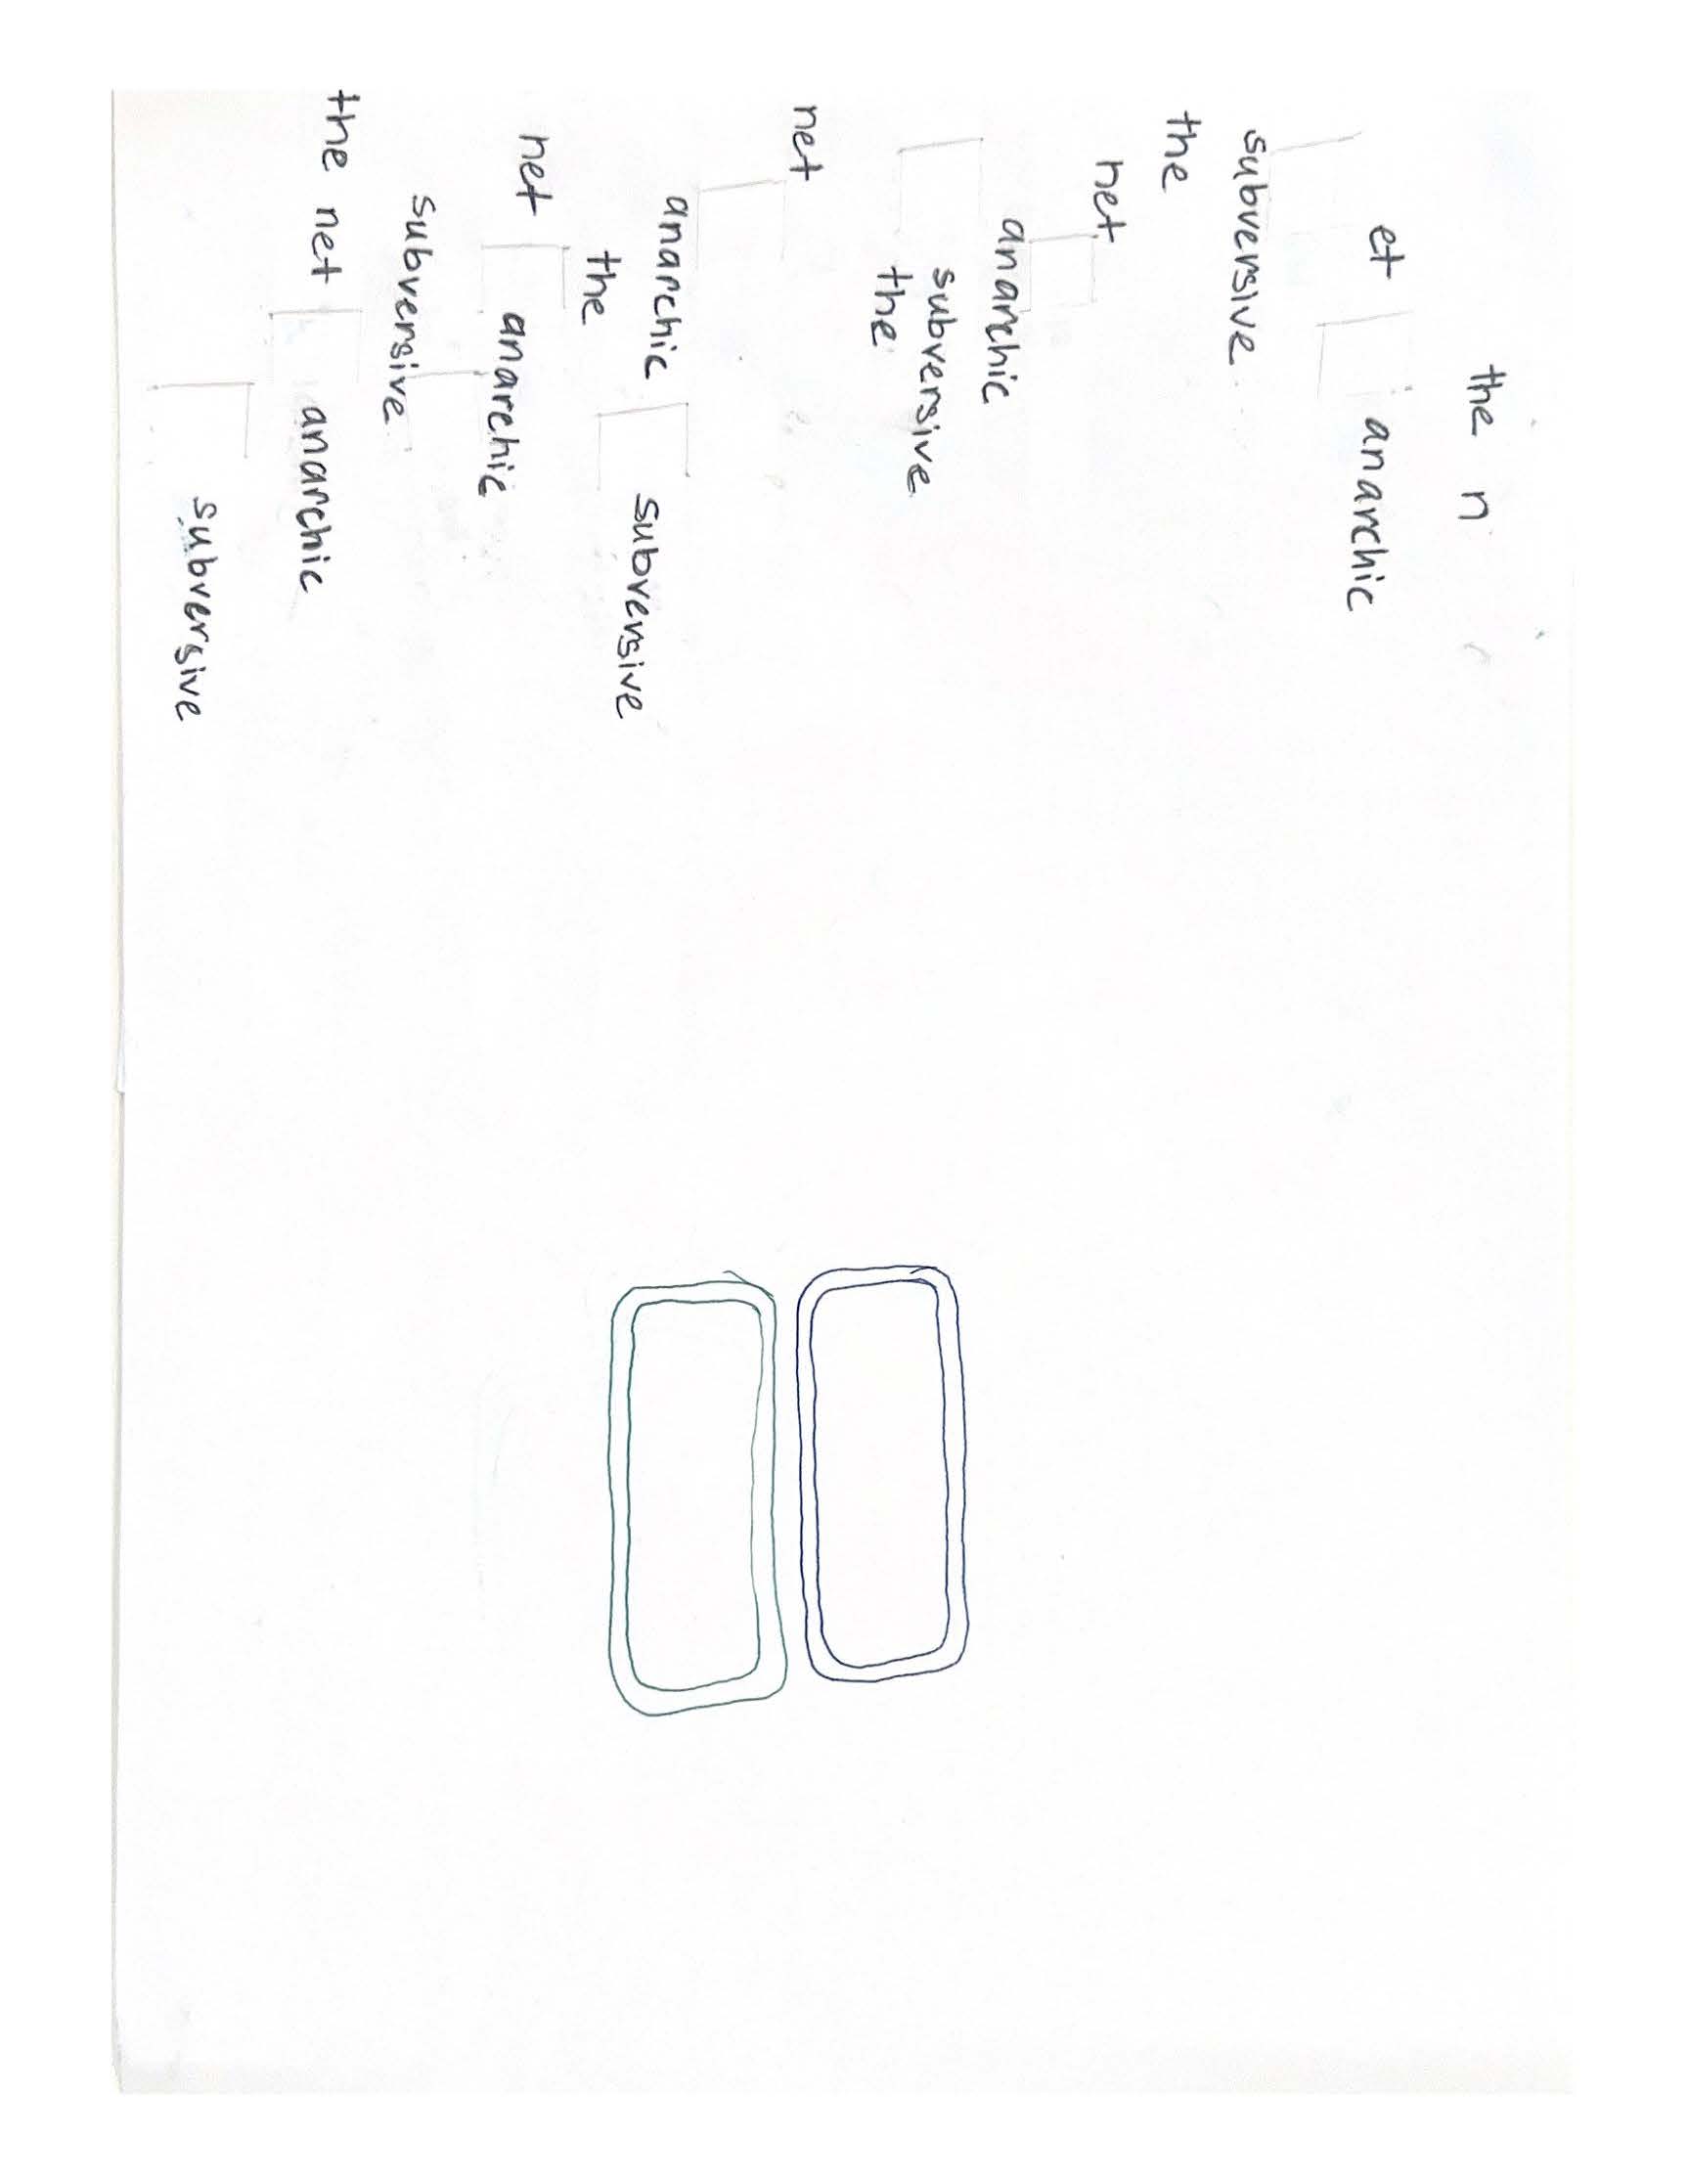 the n
et anarchic
subversive
the
net
anarchic
subversive
the
net
anarchic subversive
the
net anarchic
subversive
the net anarchic
subversive